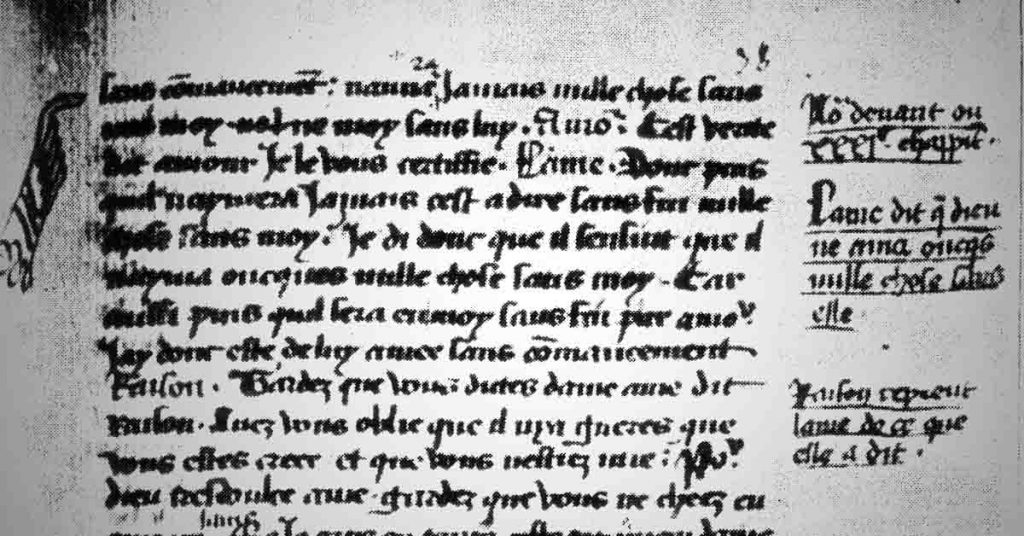 sans cōmancemēt: nanne Jamais nulle chose sans
moy ne moy sans luy. Cest verite
dit amour Je le vous certiffie. Lame. Donc puis
quil naymera Jamais cest a dire sans fin nulle
chose sans moy: Je di donc que il sensuit que il
nayma oncques nulle chose sans moy. Car
aussi puis quil sera en moy sans fin par amoʳ
Jay donc este de luy amee sans cōmancement
Raison. Gardez que vous dictes dame ame dit
raison. Auez vous oblie que il nya gueres que
vous estes creee et que vous nestiez mie:
dieu tresdoulce ame gardez que vous ne cheez en
Nō deuant ou
xxxiᵉ chappitᵉ.
Lame dit q̄ dieu
ne ama oncq̄s
nulle chose sans
elle
Raison reprent
lame de ce que
elle a dit.